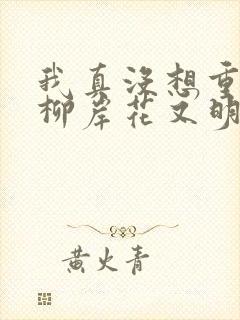 我真没想重
柳岸花又明
黄火青